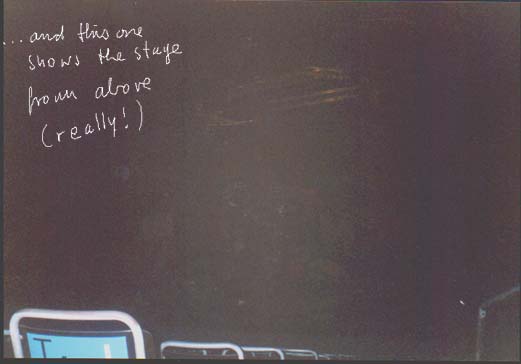 ...and this one
shows the stage
from above
(really!)